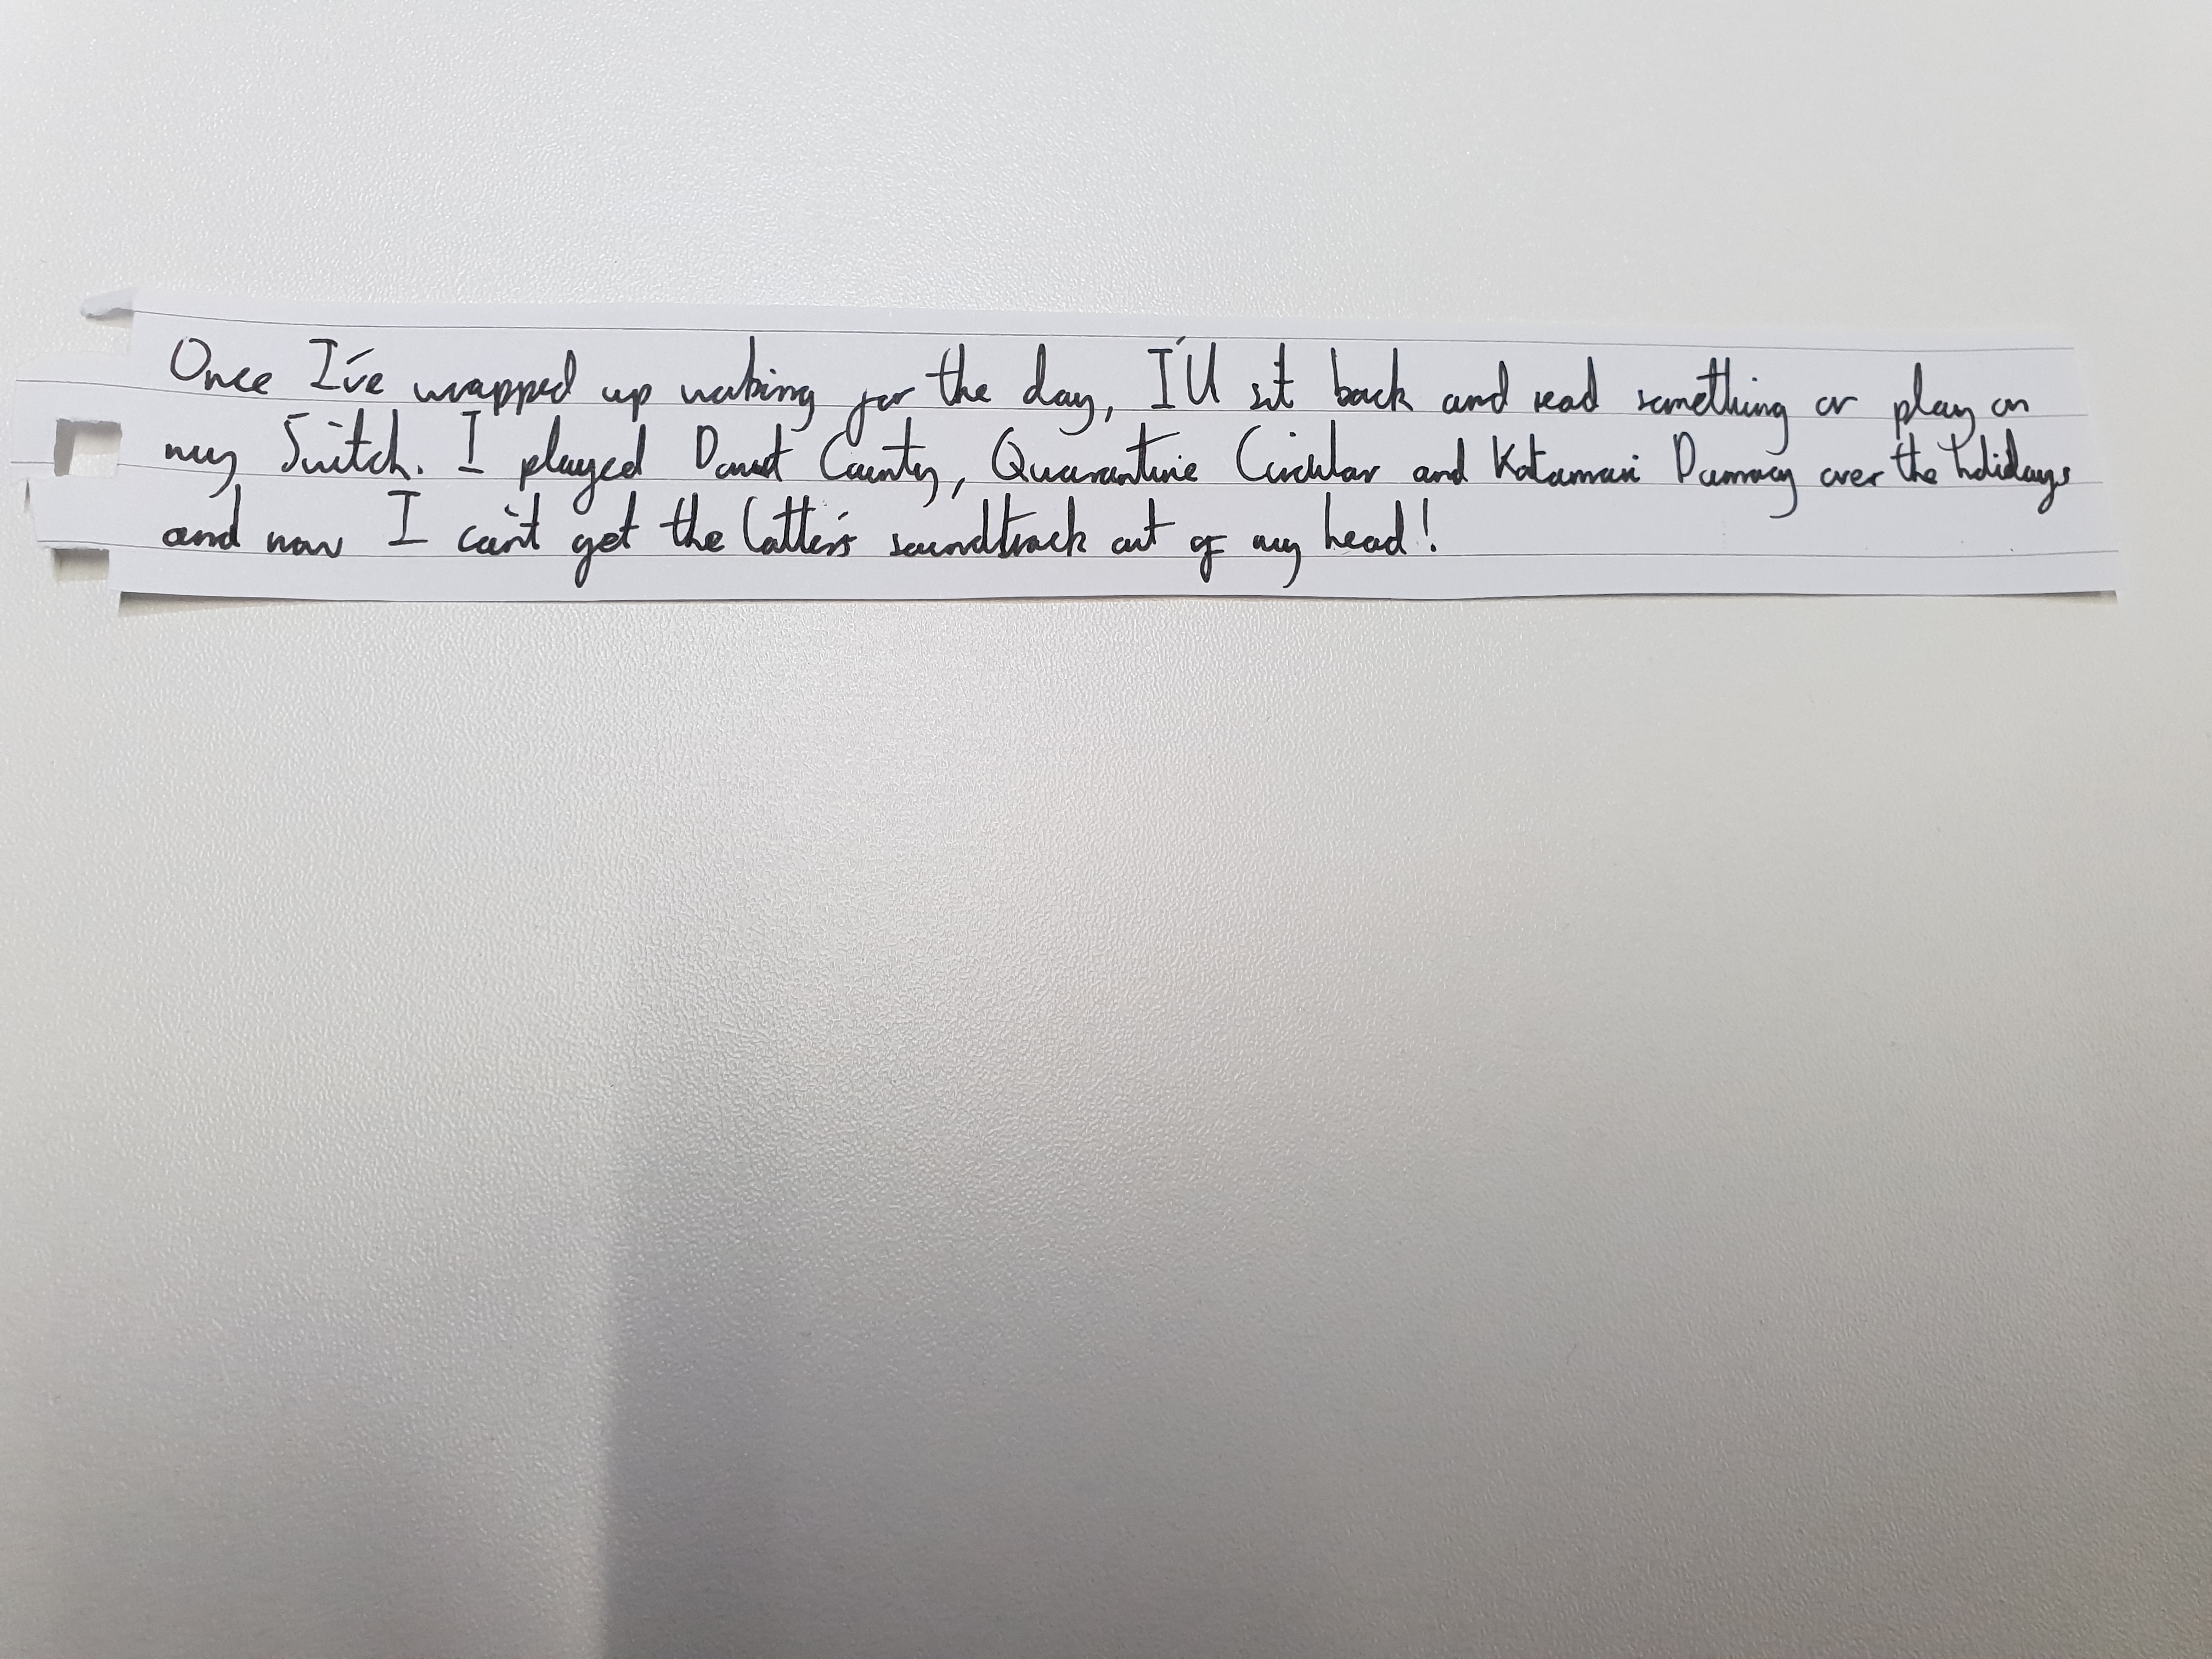 Once I've wrapped up working for the day, I'll sit back and read something or play on
my Switch. I played Donut County, Quarantine Circular and Katamari Damacy over the holidays
and now I can't get the latter's soundtrack out of my head!